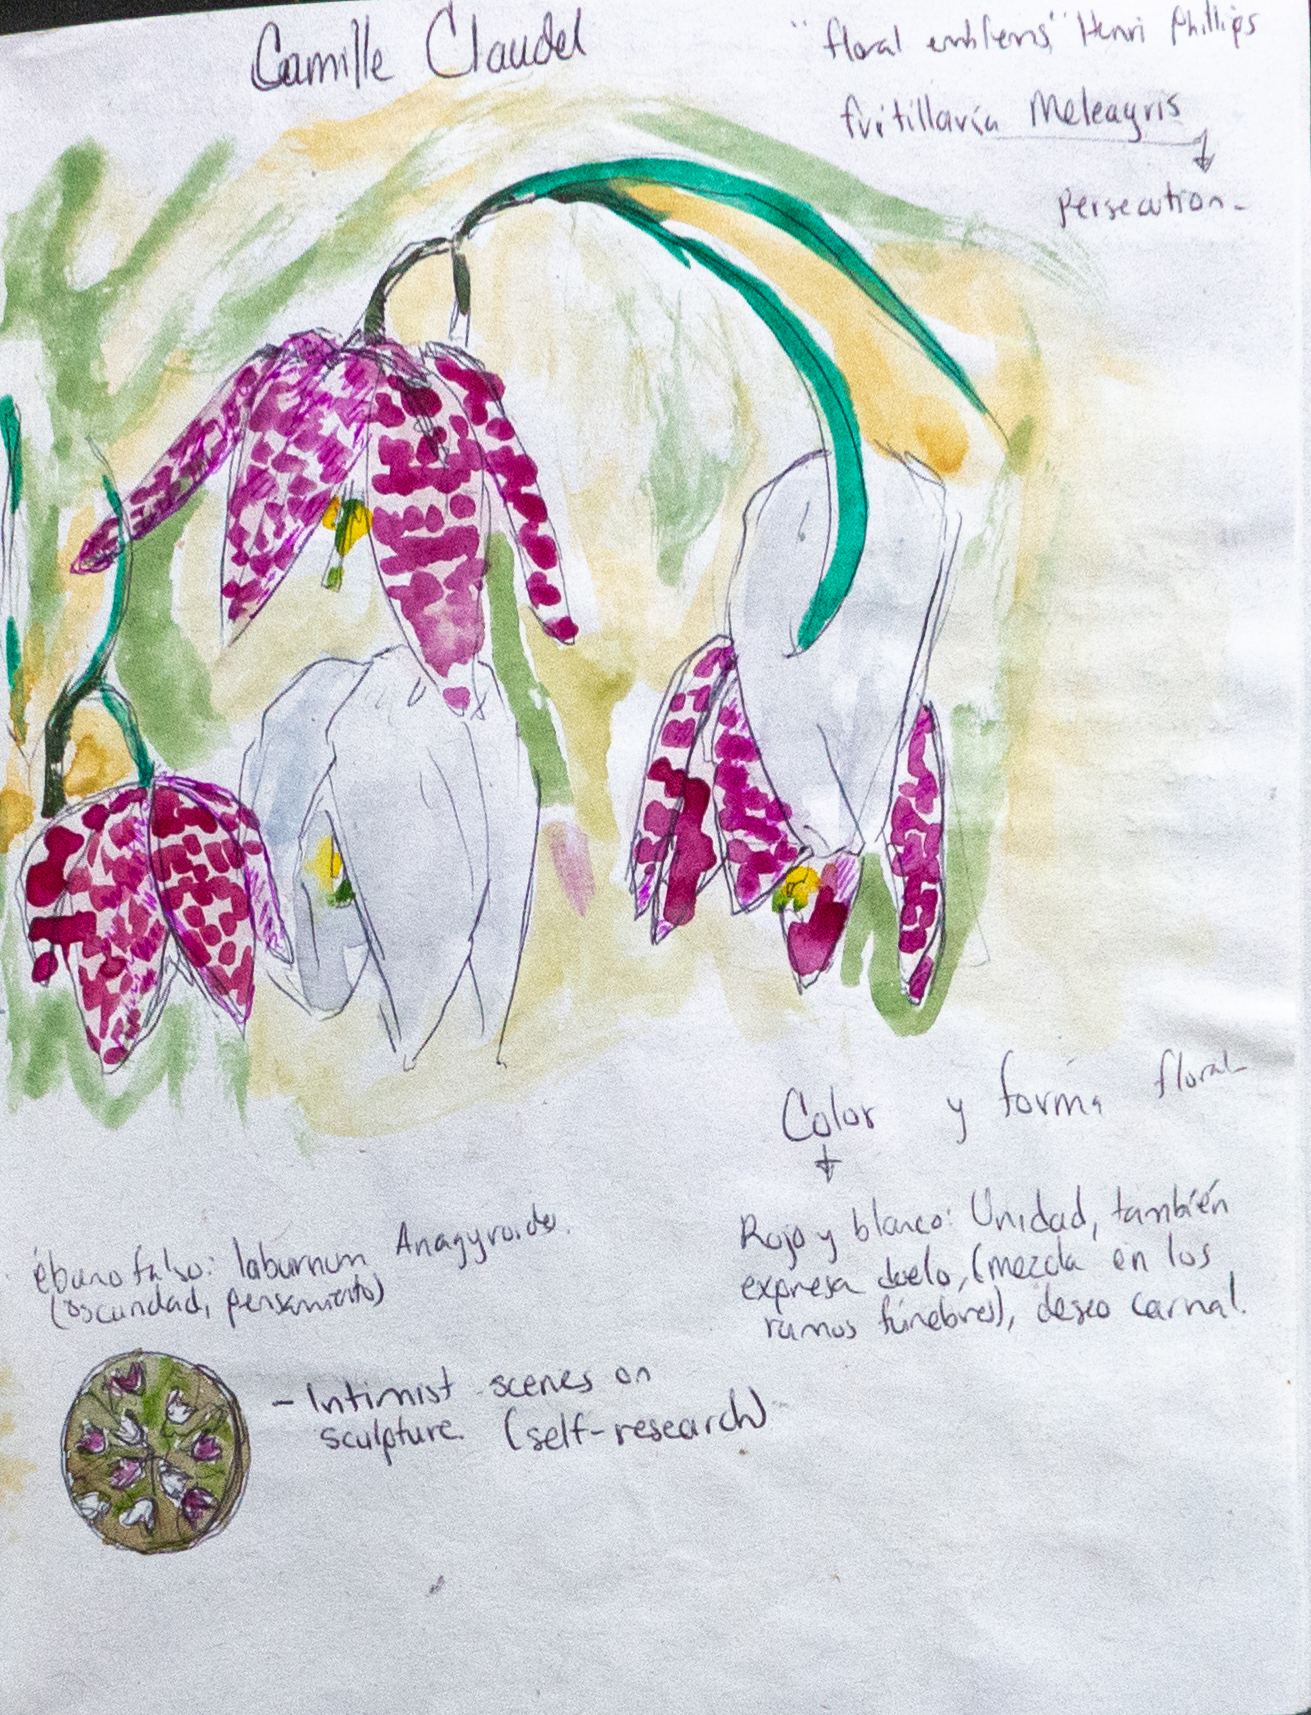 Camille Claudel
"floral emblems" Henri Phillips
fritillaria Meleagris
Persecution-
Color y forma floral
Rojo y blanco: Unidad, también
expresa duelo, (mezcla en los
ramos fúnebres), deseo carnal.
ébano falso: laburnum Anagyroides.
(oscuridad, pensamiento)
- Intimist scenes on
sculpture. (self-research)